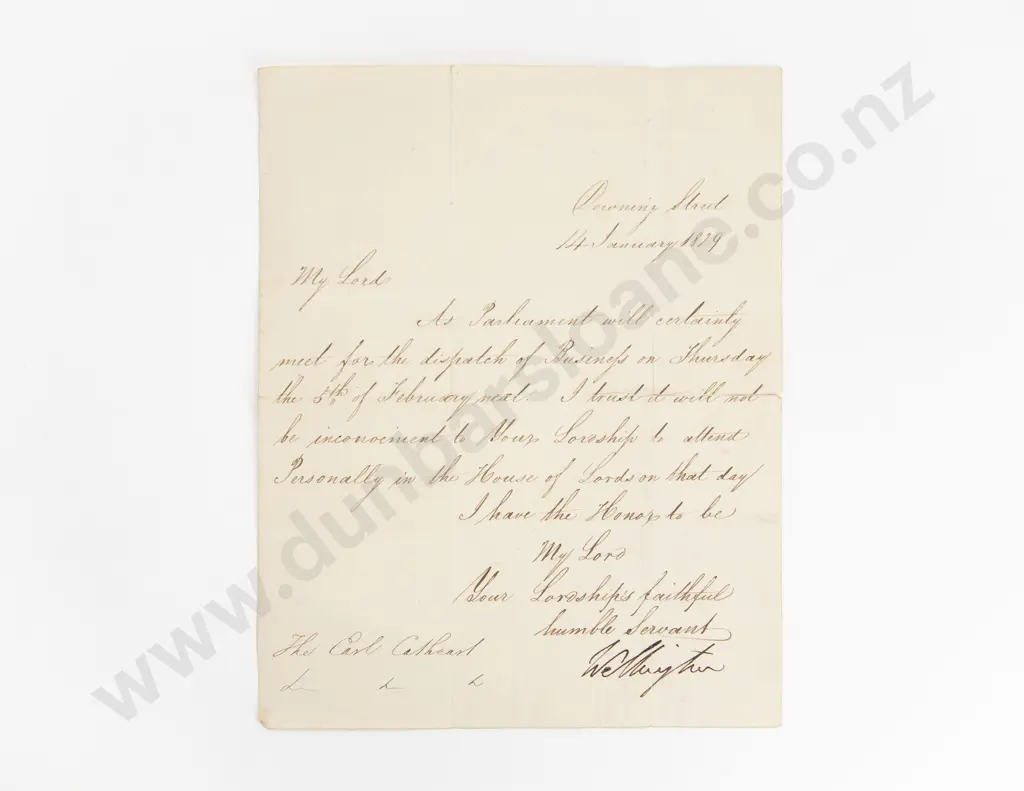 Downing Street
14 January 1829
My Lord
As Parliament will certainly
meet for the dispatch of Business on Thursday
the 5th of February next. I trust it will not
be inconvenient to Your Lordship to attend
Personally in the House of Lords on that day
I have the Honor to be
My Lord
Your Lordship's faithful
humble Servant
The Earl Cathcart
Wellington
www.dunbarsloane.co.nz